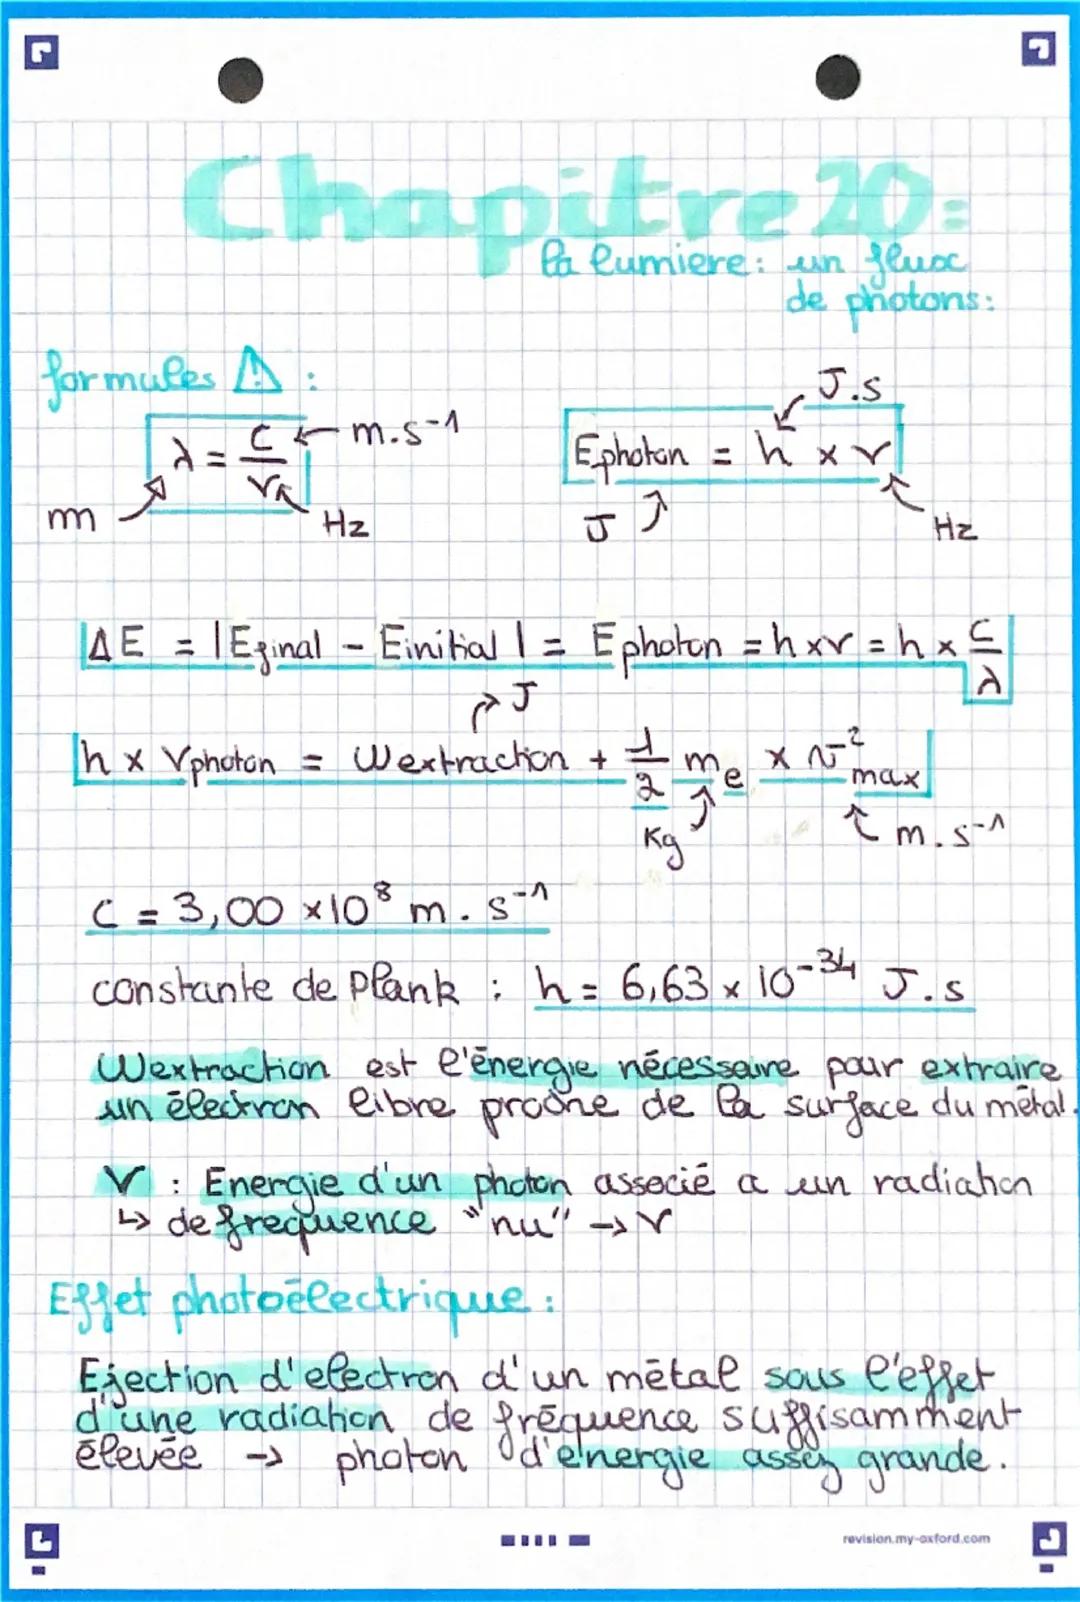 Chapitre 20:
la lumiere: un flux
de photons:
formules ⚠ :
λ = c/ν
m.s⁻¹
m
Hz
Ephoton = h × ν
J.s
J
Hz
ΔE = |Efinal - Einitial| = Ephoton = h×ν = h × c/λ
J
h × νphoton = Wextraction + 1/2 me × v²max
Kg
m.s⁻¹
c = 3,00 ×10⁸ m.s⁻¹
constante de plank : h = 6,63 × 10⁻³⁴ J.s
Wextraction est l'énergie nécessaire pour extraire
un électron libre proche de la surface du métal.
ν : Energie d'un photon associé a un radiation
↳ de frequence "nu" → ν
Effet photoélectrique :
Ejection d'electron d'un métal sous l'effet
d'une radiation de fréquence suffisamment
élevée → photon d'énergie assez grande.
revision.my-oxford.com